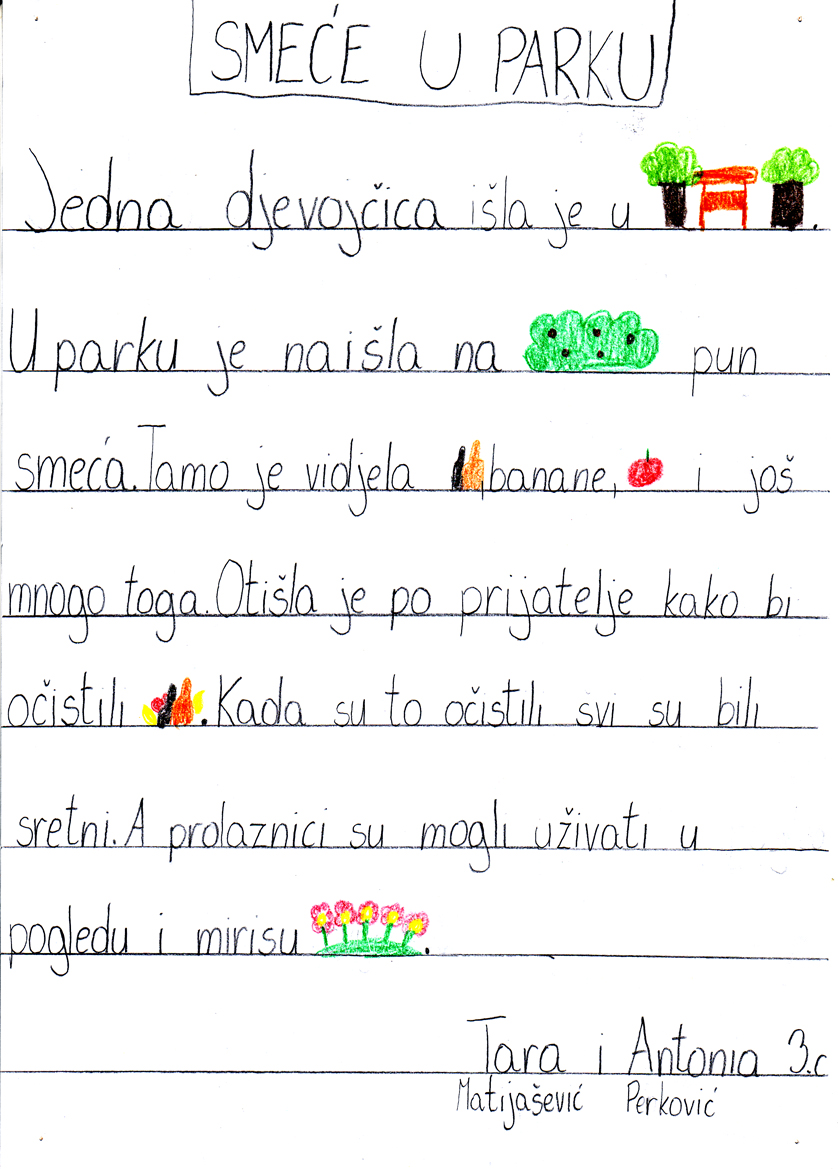 SMEĆE U PARKU
Jedna djevojčica išla je u .
U parku je naišla na pun
smeća. Tamo je vidjela , banane, i još
mnogo toga. Otišla je po prijatelje kako bi
očistili . Kada su to očistili svi su bili
sretni. A prolaznici su mogli uživati u
pogledu i mirisu .
Tara i Antonia 3.c
Matijašević Perković